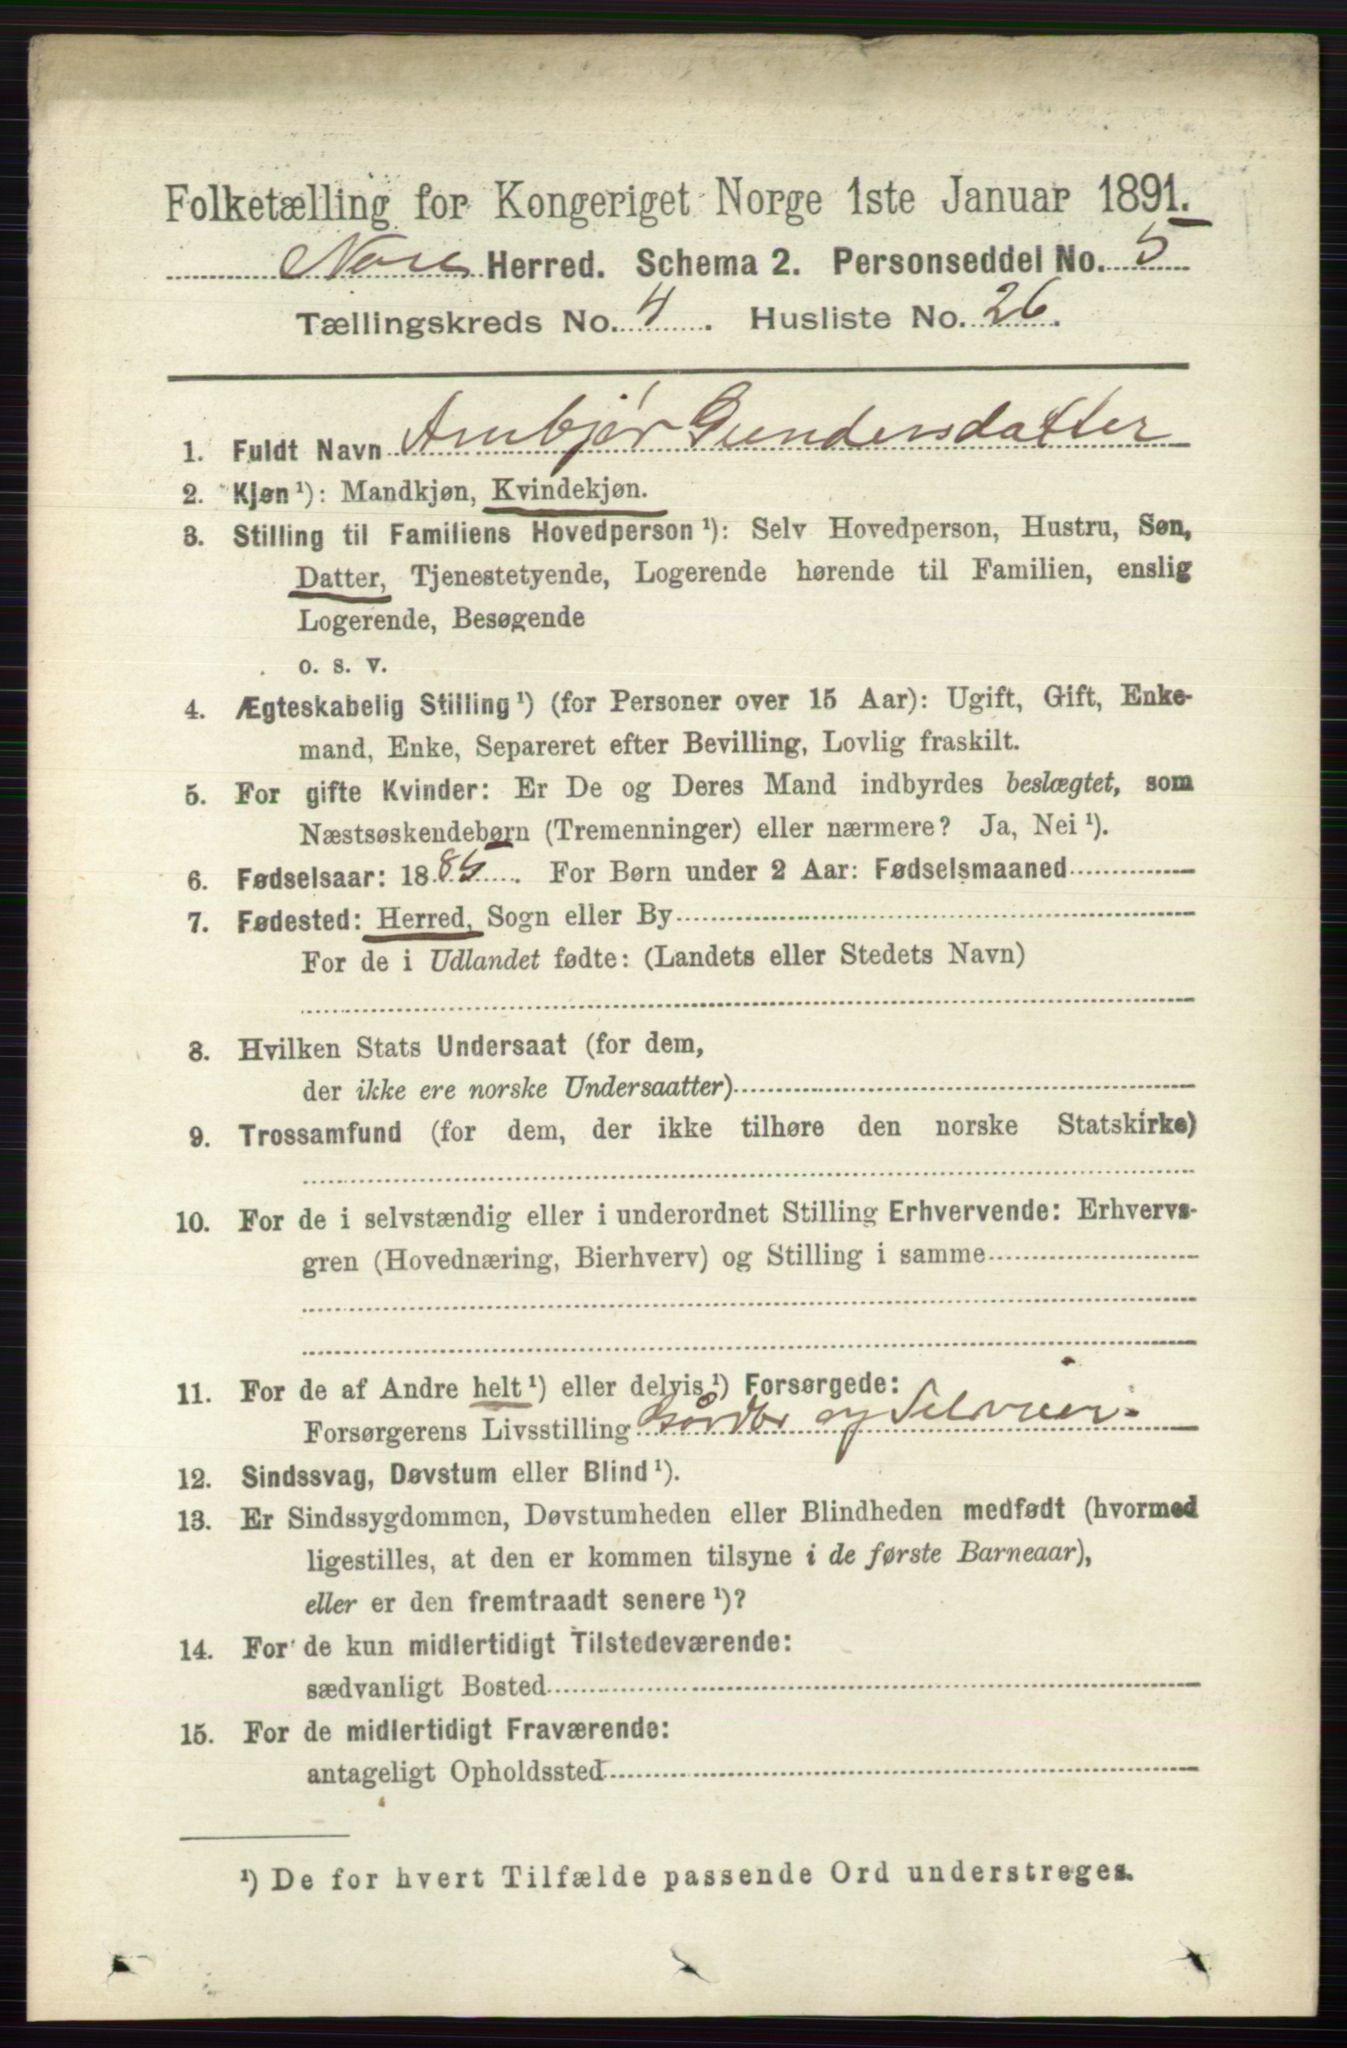 Folketælling for Kongeriget Norge 1ste Januar 1891.
Nore Herred. Schema 2. Personseddel No. 5
Tællingskreds No. 4. Husliste No. 26.
1. Fuldt Navn Ambjør Gundersdatter
2. Kjøn ¹): Mandkjøn, Kvindekjøn.
3. Stilling til Familiens Hovedperson ¹): Selv Hovedperson, Hustru, Søn,
Datter, Tjenestetyende, Logerende hørende til Familien, enslig
Logerende, Besøgende
o. s. v.
4. Ægteskabelig Stilling ¹) (for Personer over 15 Aar): Ugift, Gift, Enke-
mand, Enke, Separeret efter Bevilling, Lovlig fraskilt.
5. For gifte Kvinder: Er De og Deres Mand indbyrdes beslægtet, som
Næstsøskendebørn (Tremenninger) eller nærmere? Ja, Nei ¹).
6. Fødselsaar: 1885. For Børn under 2 Aar: Fødselsmaaned
7. Fødested: Herred, Sogn eller By
For de i Udlandet fødte: (Landets eller Stedets Navn)
8. Hvilken Stats Undersaat (for dem,
der ikke ere norske Undersaatter)
9. Trossamfund (for dem, der ikke tilhøre den norske Statskirke)
10. For de i selvstændig eller i underordnet Stilling Erhvervende: Erhvervs-
gren (Hovednæring, Bierhverv) og Stilling i samme
11. For de af Andre helt ¹) eller delvis ¹) Forsørgede:
Forsørgerens Livsstilling Gårdbr og Selveier.
12. Sindssvag, Døvstum eller Blind ¹).
13. Er Sindssygdommen, Døvstumheden eller Blindheden medfødt (hvormed
ligestilles, at den er kommen tilsyne i de første Barneaar),
eller er den fremtraadt senere ¹)?
14. For de kun midlertidigt Tilstedeværende:
sædvanligt Bosted
15. For de midlertidigt Fraværende:
antageligt Opholdssted
¹) De for hvert Tilfælde passende Ord understreges.